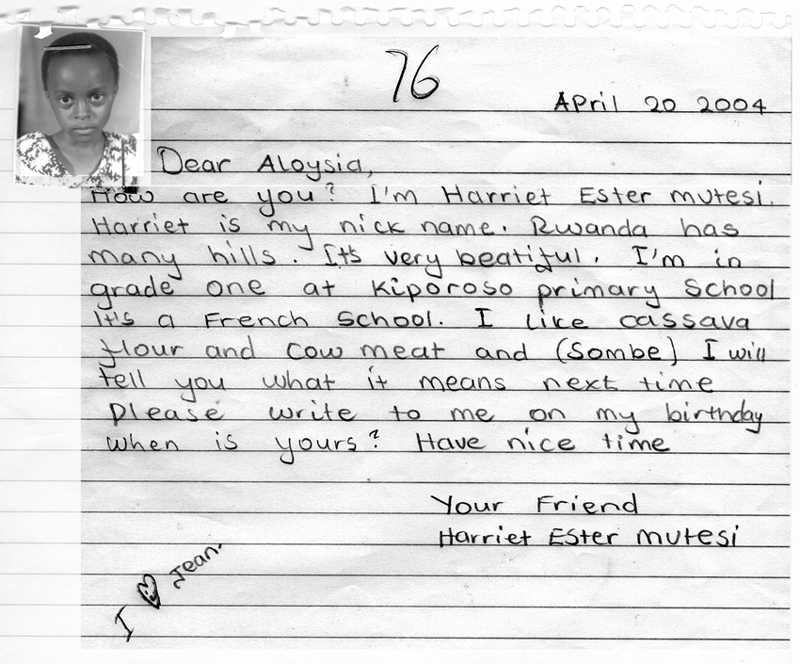 76
April 20 2004
Dear Aloysia,
How are you? I'm Harriet Ester mutesi.
Harriet is my nick name. Rwanda has
many hills. It's very beatiful. I'm in
grade one at Kiporoso primary School
It's a French School. I like cassava
flour and cow meat and (Sombe) I will
tell you what it means next time
please write to me on my birthday
when is yours? Have nice time
Your Friend
Harriet Ester mutesi
I ♥ Jean.